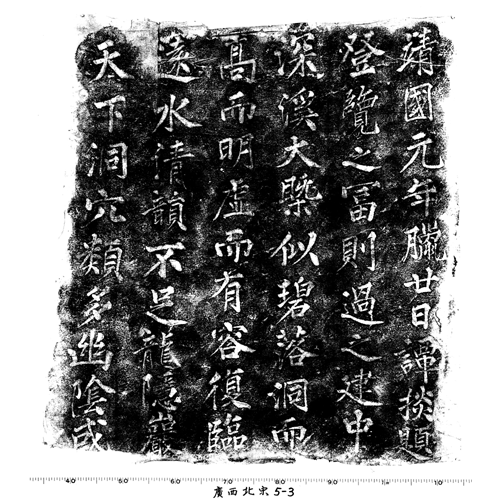 天下洞穴類多幽陰或
遠水清韻不足龍隱巖
高而明虛而有容復臨
深溪大槩似碧落洞而
登覽之富則過之建中
靖國元年臘廿日譚掞題
廣西北宋5-3